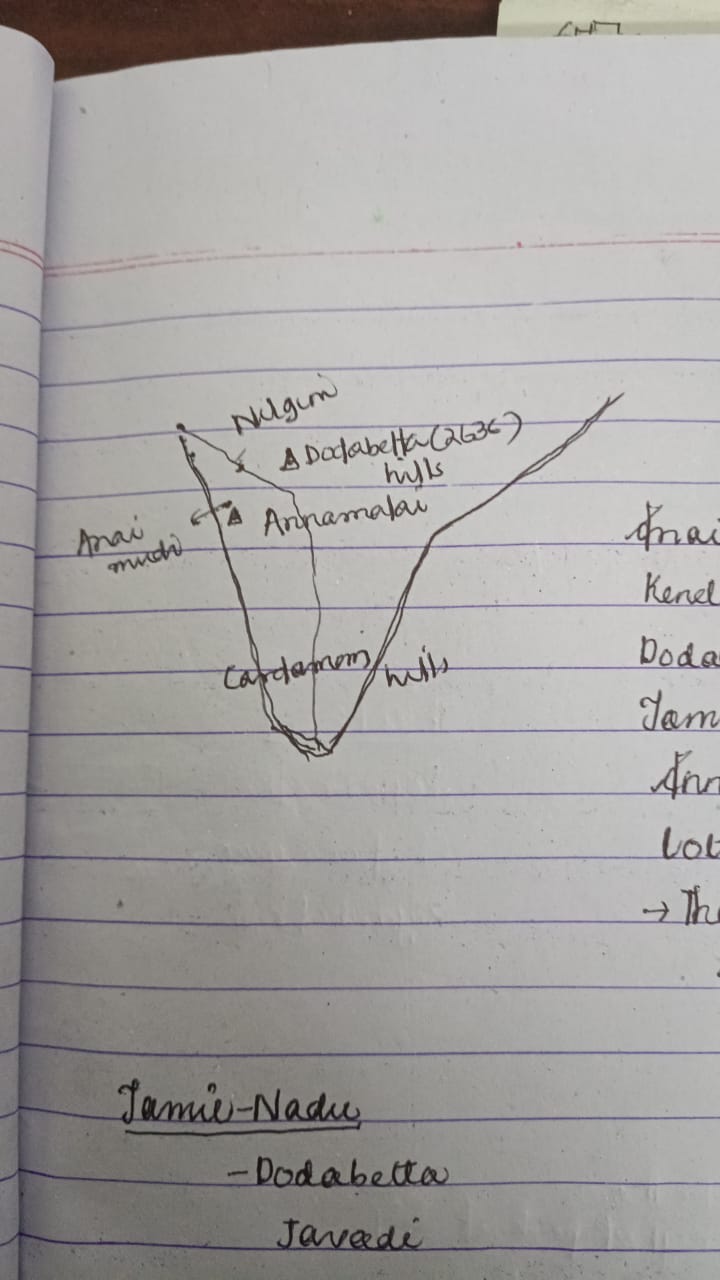 Nilgiri
Dodabetta (2636)
hills
Anai
mudi
Annamalai
Cardamom hills
Anai
Kerel
Doda
Tam
Ann
Lot
→ The
Tamil-Nadu
- Dodabetta
Javadi